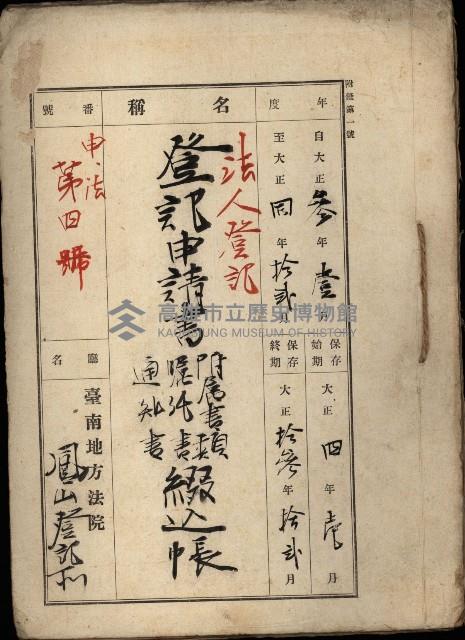 附錄第一號
年度
自大正參年壹月
至大正同年拾貳月
保存始期
大正四年壹月
保存終期
大正拾參年拾貳月
名稱
法人登記
登記申請書
附屬書類
通知書
綴込帳
番號
申、法
第四號
廳名
臺南地方法院
鳳山登記
高雄市立歷史博物館
KAOHSIUNG MUSEUM OF HISTORY